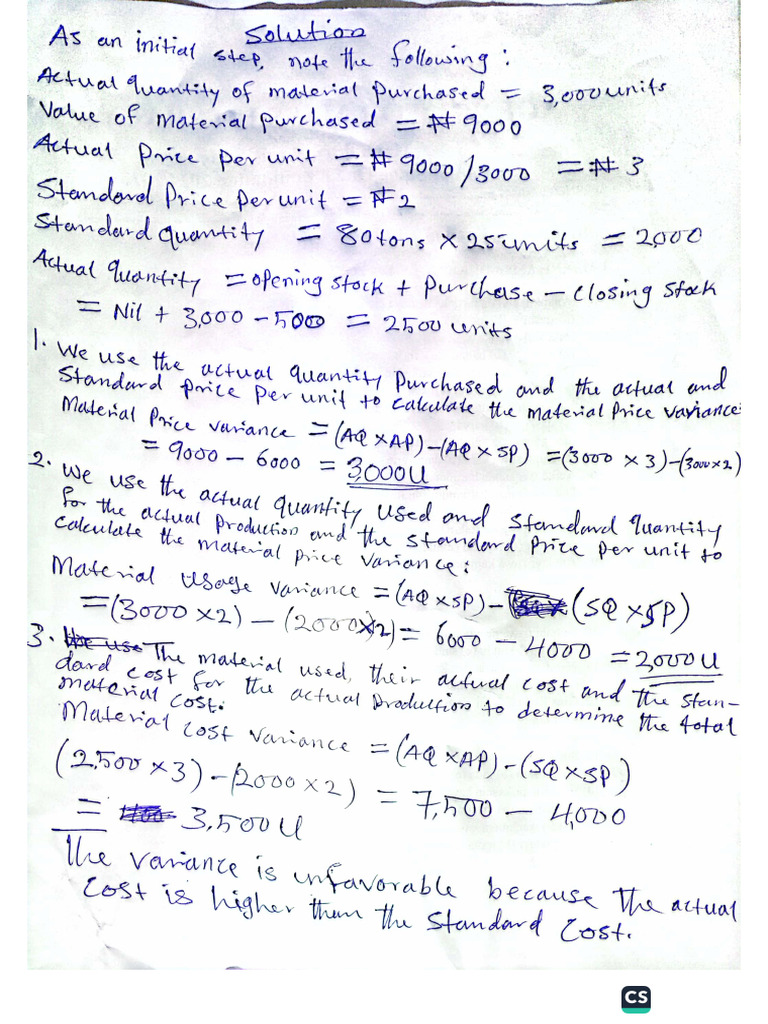 Solution
As an initial step, note the following:
Actual quantity of material purchased = 3,000 units
Value of material purchased = ₦9000
Actual Price per unit = ₦9000/3000 = ₦3
Standard Price per unit = ₦2
Standard quantity = 80tons × 25units = 2,000
Actual quantity = opening stock + purchase – closing stock
= Nil + 3,000 – 5000 = 2500 units
1. We use the actual quantity purchased and the actual and
Standard price per unit to calculate the Material Price variance:
Material Price variance = (AQ × AP) – (AQ × SP) = (3000 × 3) – (3000×2)
= 9000 – 6000 = 3,000U
2. We use the actual quantity used and standard quantity
for the actual production and the standard price per unit to
calculate the material price variance:
Material usage variance = (AQ×SP) – (SQ × SP)
= (3000 × 2) – (2000×2) = 6000 – 4000 = 2,000U
3. The material used, their actual cost and the stan-
dard cost for the actual production to determine the total
material cost.
Material cost variance = (AQ × AP) – (SQ × SP)
(2,500 × 3) – (2000 × 2) = 7,500 – 4,000
= 3,500U
The variance is unfavorable because the actual
cost is higher than the standard cost.
CS